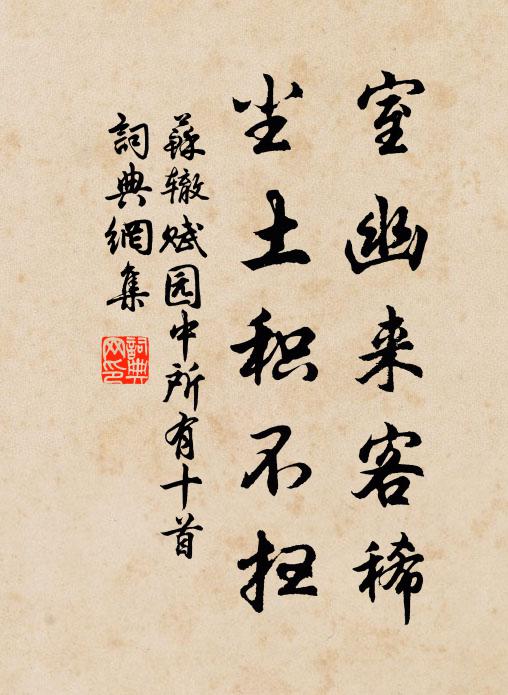 室幽来客稀
尘土积不扫
蘇辙赋园中所有十首
詞典網集
詞典
网印